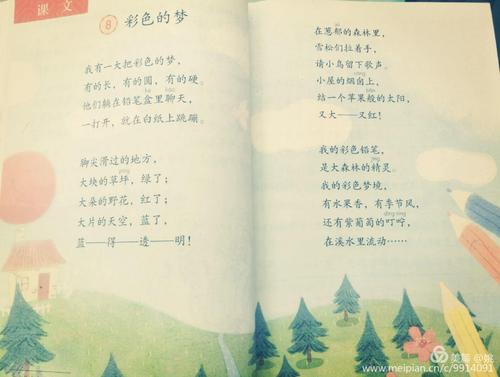 课文
8 彩色的梦
我有一大把彩色的梦，
有的长，有的圆，有的硬。
他们躺在铅笔盒里聊天，
一打开，就在白纸上跳蹦。
脚尖滑过的地方，
大块的草坪，绿了；
大朵的野花，红了；
大片的天空，蓝了，
蓝——得——透——明！
在葱郁的森林里，
雪松们拉着手，
请小鸟留下歌声。
小屋的烟囱上，
结一个苹果般的太阳，
又大——又红！
我的彩色铅笔，
是大森林的精灵。
我的彩色梦境，
有水果香，有季节风，
还有紫葡萄的叮咛，
在溪水里流动……
美篇 @婉
www.meipian.cn/c/9914091